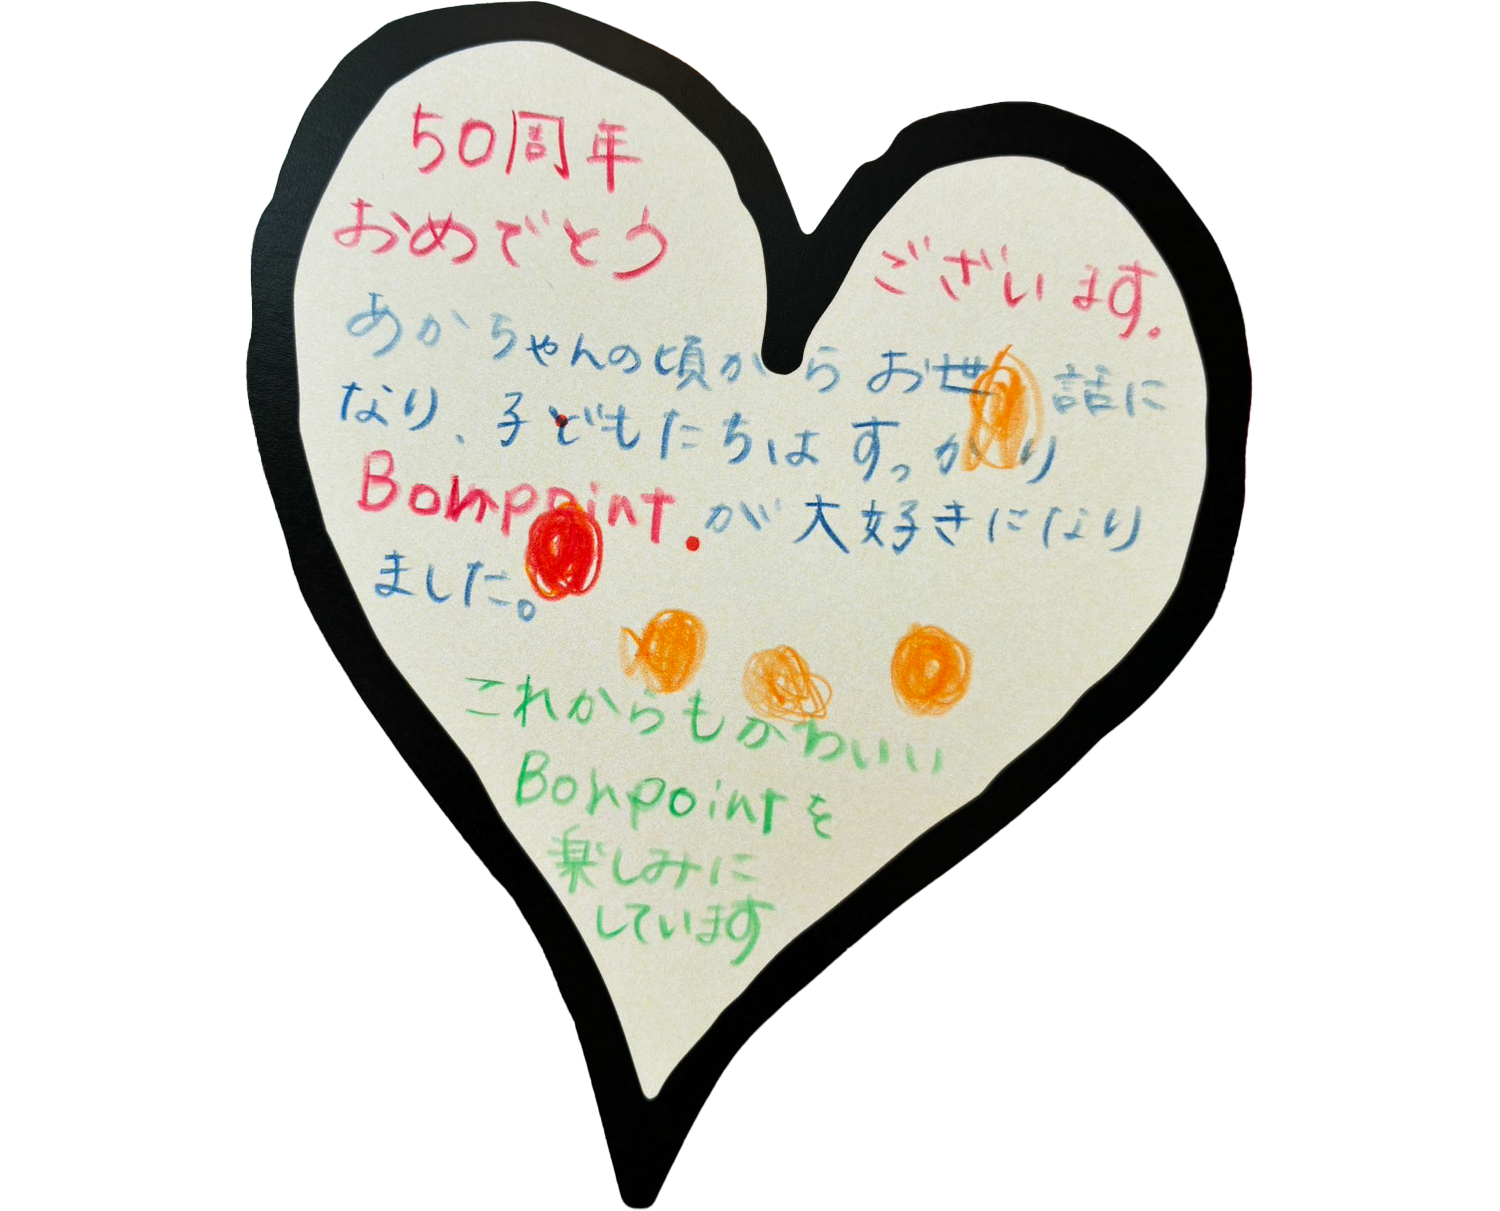 50周年
おめでとう ございます。
あかちゃんの頃から お世話に
なり、子どもたちは すっかり
Bonpointが大好きになり
ました。
これからもかわいい
Bonpointを
楽しみに
しています